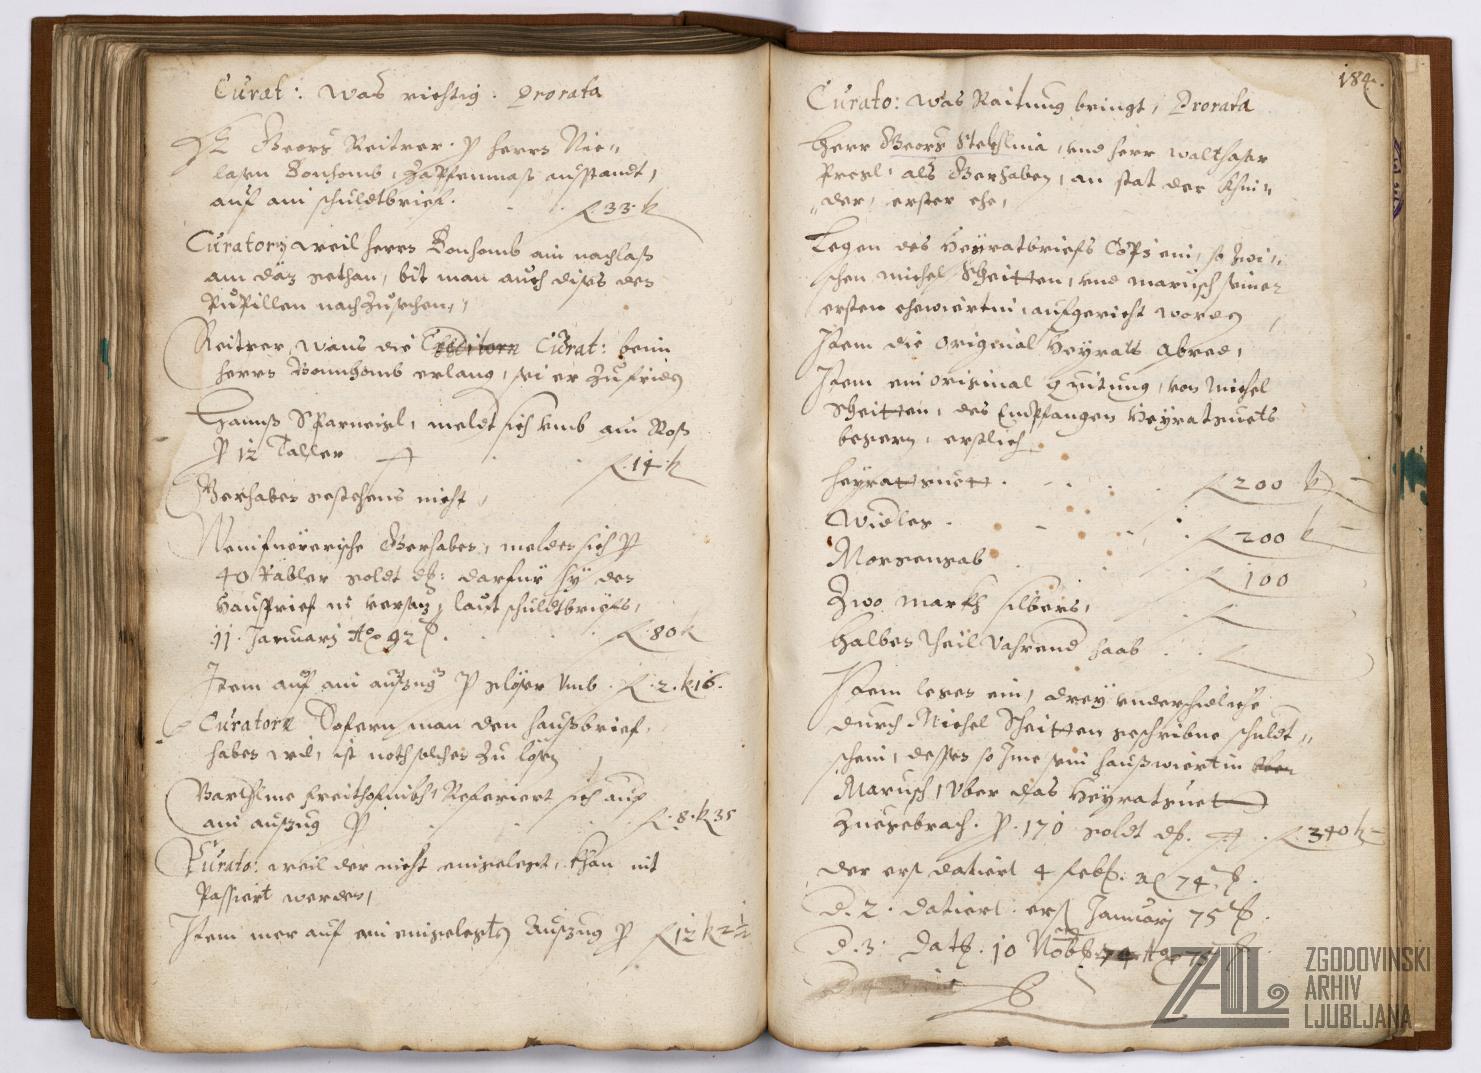 Curat: was richtig. Prorata
Georg Reitrer. p herrn Nic=
lasen Bonhomb, Zapfenmaß ausstandt,
auf ain schuldtbrief. f. 33. k
Curatorn weil herrn Bonhomb ain nachlaß
am däz gethan, bit man auch dises den
Pupillen nachzusehen,
Reitrer, wans die Curat: beim
herrn Bonnhomb erlang, sei er zufriden
Hannß Sparneisl, meldt sich umb ain Roß
p 12 Taller f. 14. k
Gerhaben gestehens nicht,
Gerhaben, melden sich p
40 taller golt dß: darfur sy den
Hausbrief in versaz, laut schuldtbriefs,
11. Januarj Ao 92 f. 80 k
Item auf ain auszug p glöser umb. f. 2. k 16.
Curatorn Sofern man den haußbrief,
haben wil, ist noth solchen zu lösen
Barthlme freithofnikh, Referiert sich auf
ain auszug p f. 8. k 35
Curato: weil der nicht eingelegt, khan nit
Passiert werden,
Item mer auf ain eingelegten Auszug p f 12 k 2 1/2
184.
Curato: was Raitung bringt, Prorata
Herr Georg Stehslina, und herr walthasar
Presl, als Gerhaben, an stat der Khin=
der, erster ehe,
Legen des Heyratbriefs Copi ein, so zwi=
schen michel Scheitten, und marusch seiner
ersten ehewiertin, aufgericht worden
Item die original Heyrats Abred,
Item ein original quitung, von Michel
Scheitten, des Empfangen Heyratguets
wegen, erstlich
heyrattguett. f 200 k
Widleg. f 200 k
Morgengab f 100
Zwo markh silbers,
Halben theil Vahrend haab
Item legen ein, drey underschidliche
durch Michel Scheitten geschribne schuldt=
schein, dessen so Ime sein haußwiertin
Marusch, Uber das Heyratguet
zuegebrach. p. 170 golt dß. f 340 k
der erst datiert 4 feb: Ao 74
D. 2. datiert erst Januarj 75
D. 3. Dat. 10 Nob Ao 75
ZAL ZGODOVINSKI
ARHIV
LJUBLJANA